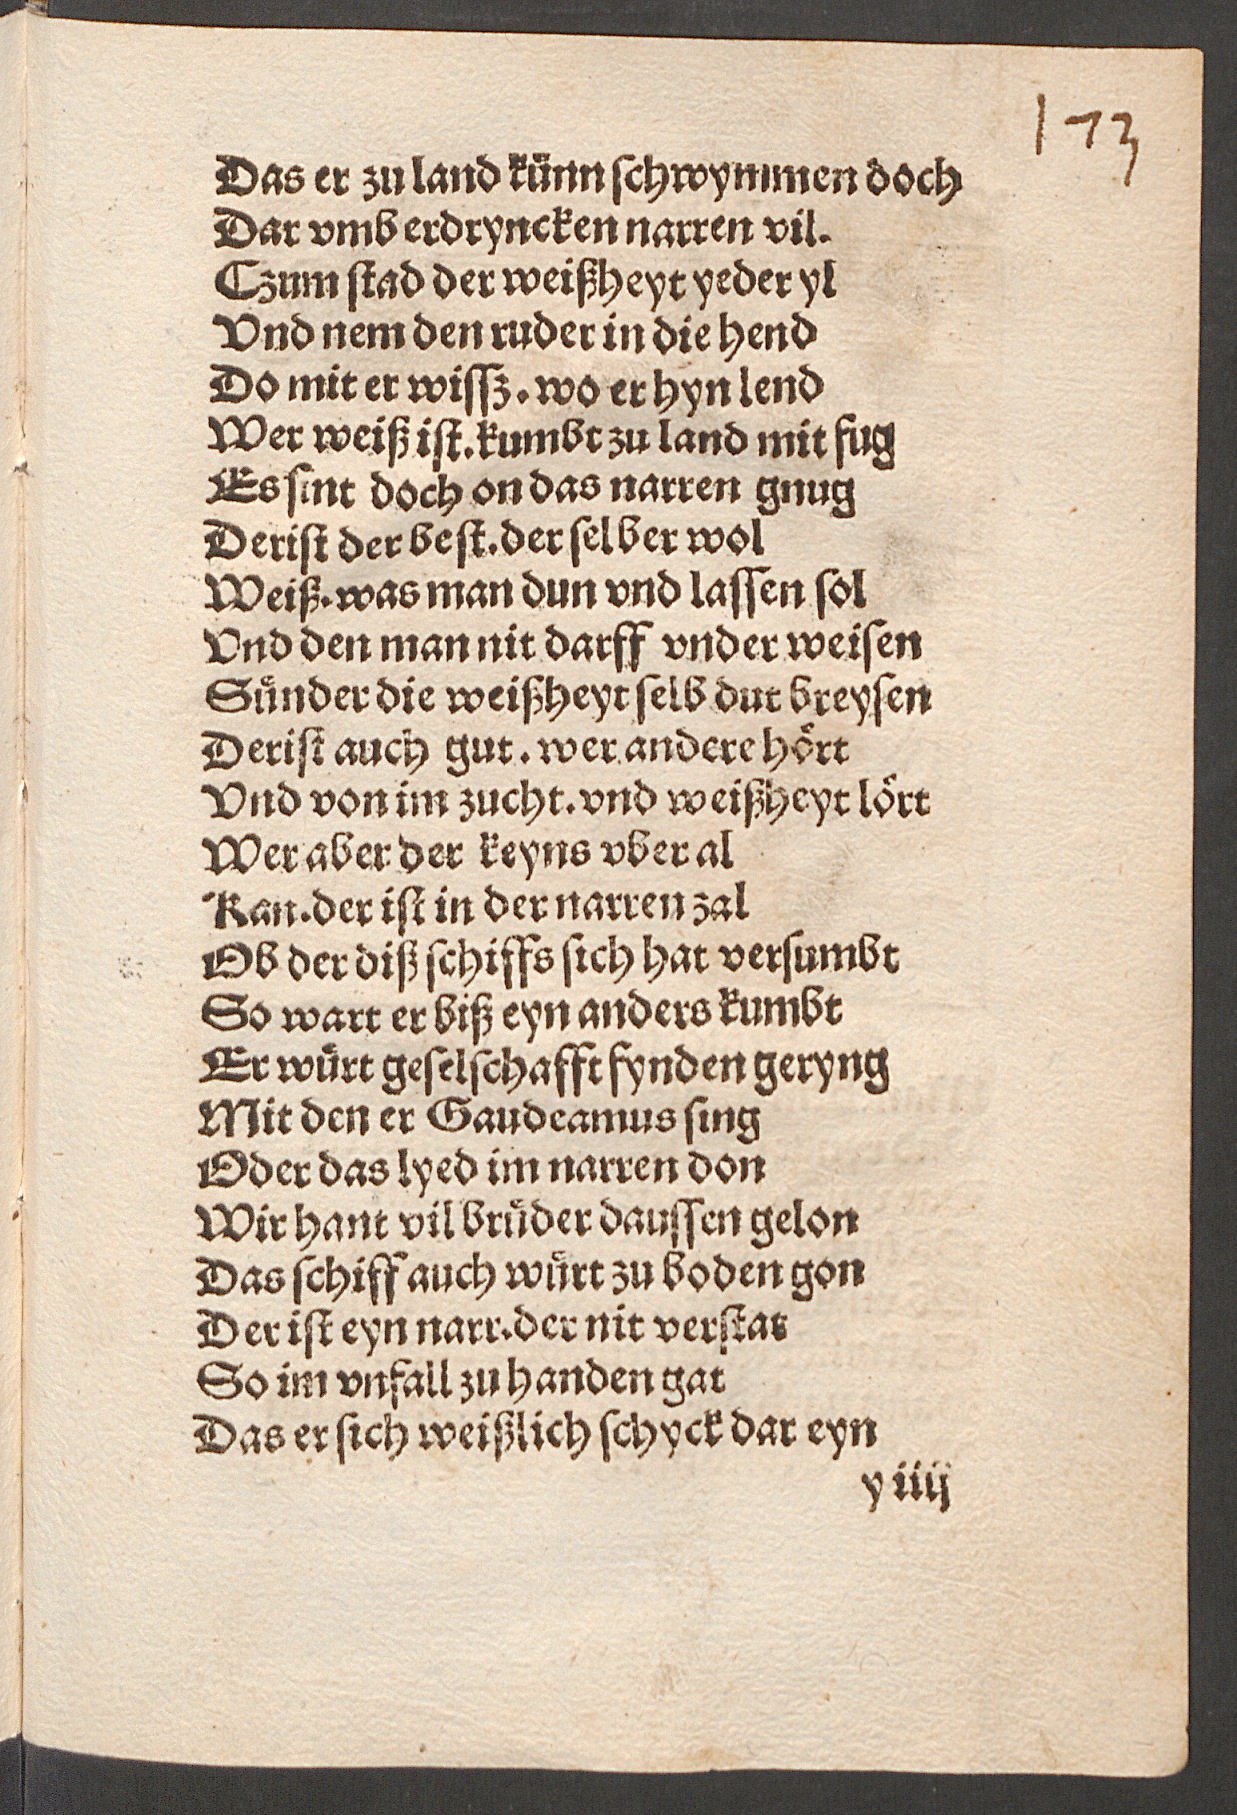 173
Das er zu land künn schwymmen doch
Dar vmb erdryncken narren vil.
Czum stad der weißheyt yeder yl
Vnd nem den ruder in die hend
Do mit er wissz. wo er hyn lend
Wer weiß ist. kumbt zu land mit fug
Es sint doch on das narren gnug
Der ist der best. der selber wol
Weiß. was man dun vnd lassen sol
Vnd den man nit darff vnder weisen
Sünder die weißheyt selb dut breysen
Der ist auch gut. wer andere hört
Vnd von im zucht. vnd weißheyt lört
Wer aber der keyns vber al
Kan. der ist in der narren zal
Ob der diß schiffs sich hat versumbt
So wart er biß eyn anders kumbt
Er würt geselschafft fynden geryng
Mit den er Gaudeamus sing
Oder das lyed im narren don
Wir hant vil brüder daussen gelon
Das schiff auch würt zu boden gon
Der ist eyn narr. der nit verstat
So im vnfall zu handen gat
Das er sich weißlich schyck dar eyn
y iiij